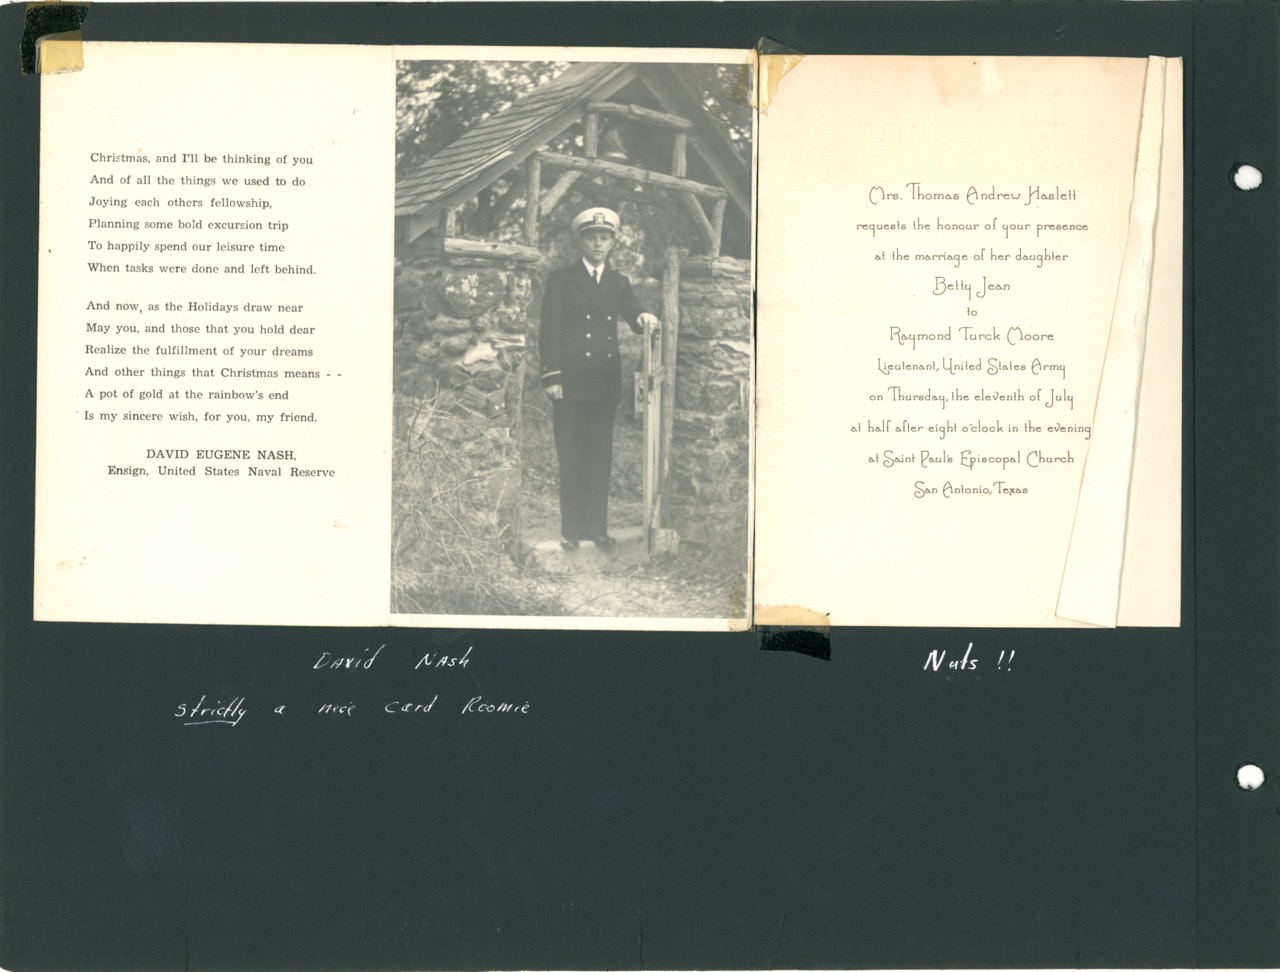 Christmas, and I'll be thinking of you
And of all the things we used to do
Joying each others fellowship,
Planning some bold excursion trip
To happily spend our leisure time
When tasks were done and left behind.
And now, as the Holidays draw near
May you, and those that you hold dear
Realize the fulfillment of your dreams
And other things that Christmas means - -
A pot of gold at the rainbow's end
Is my sincere wish, for you, my friend.
DAVID EUGENE NASH,
Ensign, United States Naval Reserve
Mrs. Thomas Andrew Haslett
requests the honour of your presence
at the marriage of her daughter
Betty Jean
to
Raymond Turck Moore
Lieutenant, United States Army
on Thursday, the eleventh of July
at half after eight o'clock in the evening
at Saint Paul's Episcopal Church
San Antonio, Texas
David Nash
strictly a nice card Roomie
Nuts !!